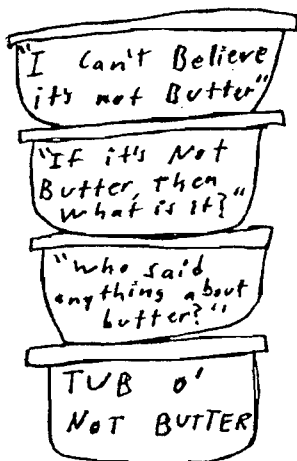 "I Can't Believe
it's not Butter"
"If it's Not
Butter, Then
What is it?"
"Who said
anything about
butter?"
TUB O'
NOT BUTTER